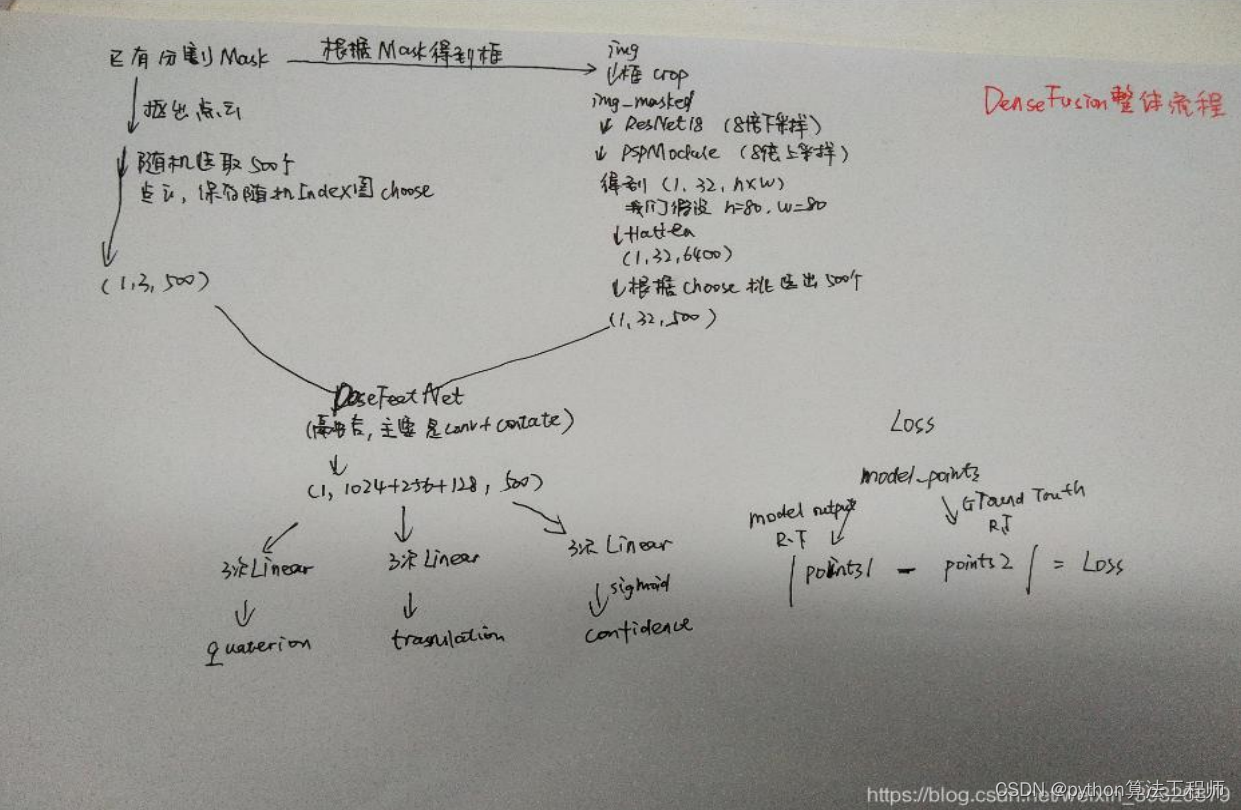 DenseFusion整体流程
已有分割Mask
根据Mask得到框
img
框 crop
抠出点云
img_masked
ResNet18 (8倍下采样)
随机选取500个
点云,保存随机Index图choose
PSPModule (8倍上采样)
得到 (1, 32, h×w)
我们假设 h=80, w=80
flatten
(1,32,6400)
(1,3,500)
根据choose挑选出500个
(1,32,500)
PoseFeatNet
主要是conv+
(1, 1024+256+128, 500)
3次Linear
3次Linear
3次Linear
sigmoid
quaterion
translation
confidence
Loss
model_points
model output
R.T
R.T
| points1 - points2 | = Loss
CSDN @python算法工程师